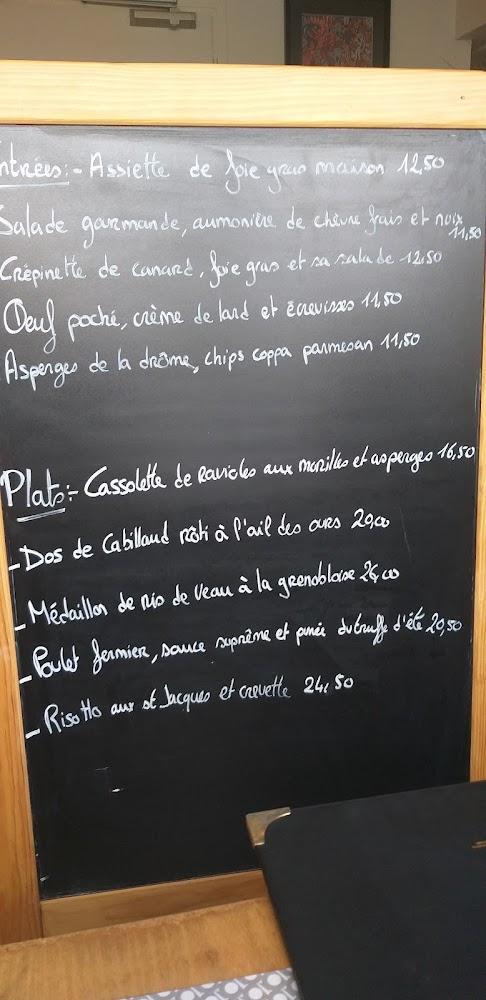 ntrées:- Assiette de foie gras maison 12,50
Salade gourmande, aumonière de chèvre frais et noix 11,50
Crépinette de canard, foie gras et sa salade 12,50
Oeuf poché, crème de lard et écrevisses 11,50
Asperges de la drôme, chips coppa parmesan 11,50
Plats:- Cassolette de Ravioles aux morilles et asperges 16,50
- Dos de Cabillaud rôti à l'ail des ours 20,00
- Médaillon de ris de Veau à la grenobloise 26,00
- Poulet fermier, sauce suprême et purée du truffe d'été 20,50
- Risotto aux st Jacques et crevette 24,50